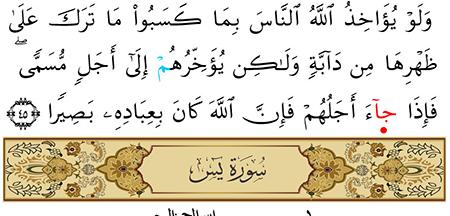 وَلَوْ يُؤَاخِذُ ٱللَّهُ ٱلنَّاسَ بِمَا كَسَبُوا۟ مَا تَرَكَ عَلَىٰ
ظَهْرِهَا مِن دَآبَّةٍ وَلَـٰكِن يُؤَخِّرُهُمْ إِلَىٰٓ أَجَلٍ مُّسَمًّى ۖ
فَإِذَا جَآءَ أَجَلُهُمْ فَإِنَّ ٱللَّهَ كَانَ بِعِبَادِهِۦ بَصِيرًۢا ﴿٤٥﴾
سُورَةُ يسٓ